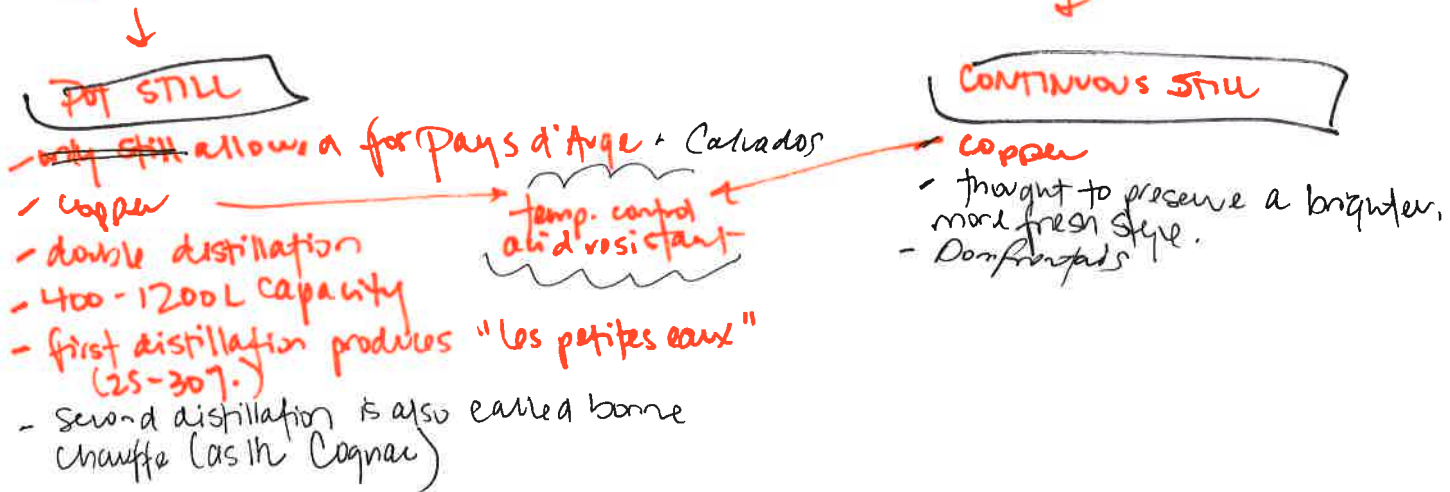 POT STILL
- only still allowed for Pays d'Auge + Calvados
- copper
- double distillation
- 400-1200L capacity
- first distillation produces "les petites eaux"
(25-30%.)
- second distillation is also called bonne
chauffe (as in Cognac)
temp. control
acid resistant
CONTINUOUS STILL
- copper
- thought to preserve a brighter,
more fresh style.
- Domfrontais